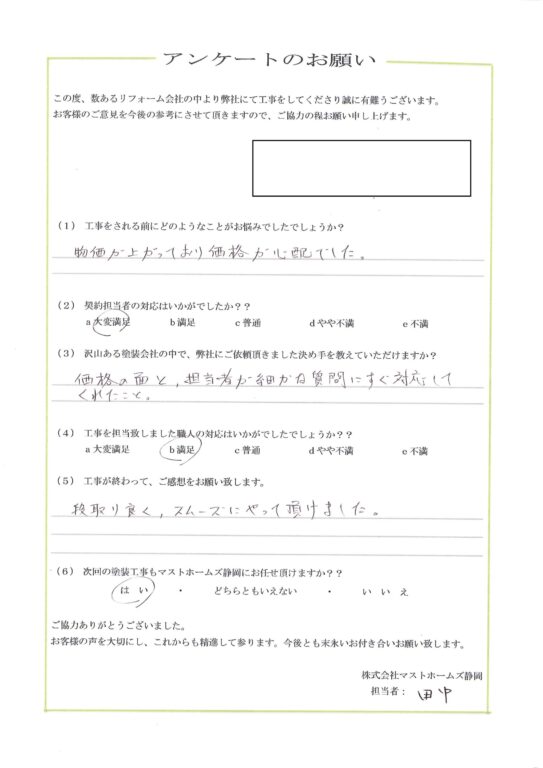 アンケートのお願い
この度、数あるリフォーム会社の中より弊社にて工事をしてくださり誠に有難うございます。
お客様のご意見を今後の参考にさせて頂きますので、ご協力の程お願い申し上げます。
(1) 工事をされる前にどのようなことがお悩みでしたでしょうか?
物価が上がっており価格が心配でした。
(2) 契約担当者の対応はいかがでしたか??
a大変満足 b満足 c普通 dやや不満 e不満
(3) 沢山ある塗装会社の中で、弊社にご依頼頂きました決め手を教えていただけますか?
価格の面と、担当者が細かな質問にすぐ対応して
くれたこと。
(4) 工事を担当致しました職人の対応はいかがでしたでしょうか??
a大変満足 b満足 c普通 dやや不満 e不満
(5) 工事が終わって、ご感想をお願い致します。
段取り良く、スムーズにやって頂けました。
(6) 次回の塗装工事もマストホームズ静岡にお任せ頂けますか??
はい ・ どちらともいえない ・ いいえ
ご協力ありがとうございました。
お客様の声を大切にし、これからも精進して参ります。今後とも末永いお付き合いお願い致します。
株式会社マストホームズ静岡
担当者: 田中